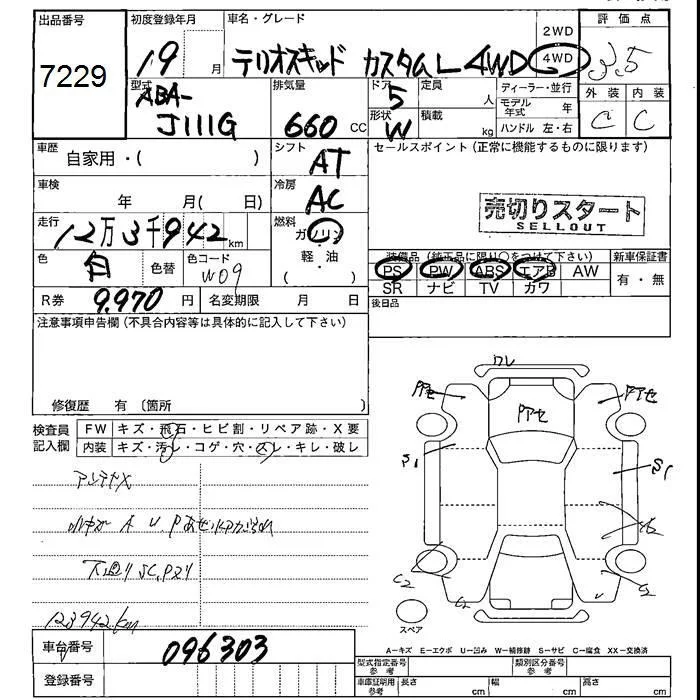 出品番号
7229
初度登録年月
19 月
車名・グレード
テリオスキッド カスタムL 4WD
2WD
4WD
評価点
3.5
外装 内装
C C
型式
ABA-
J111G
排気量
660 CC
ドア
5
形状
W
定員
人
積載
kg
ディーラー・並行
モデル年式 年
ハンドル 左・右
車歴
自家用・( )
シフト
AT
セールスポイント(正常に機能するものに限ります)
車検
年 月( 日)
冷房
AC
売切りスタート
SELLOUT
走行
12万3千942km
燃料
ガソリン
軽・油
色
白
色替
色コード
W09
装備品(純正品に限り〇をつけて下さい)
PS PW ABS エアB AW
SR ナビ TV カワ
新車保証書
有・無
R券 9,970 円
名変期限 月 日
後日品
注意事項申告欄(不具合内容等は具体的に記入して下さい)
修復歴 有 〔箇所 〕
検査員
記入欄
FW キズ・飛石・ヒビ割・リペア跡・X要
内装 キズ・汚レ・コゲ・穴・スレ・キレ・破レ
アンテナX
下廻りSC,Pスリ
123942km
ワレ
Pアセ
Pアセ
Pアセ
S1
S1
C2
C2
スペア
A-キズ E-エクボ U-凹み W-補修跡 S-サビ C-腐食 XX-交換済
車台番号
096303
登録番号
型式指定番号
参考
類別区分番号
参考
車庫証明用
参考
長さ cm
幅 cm
高さ cm